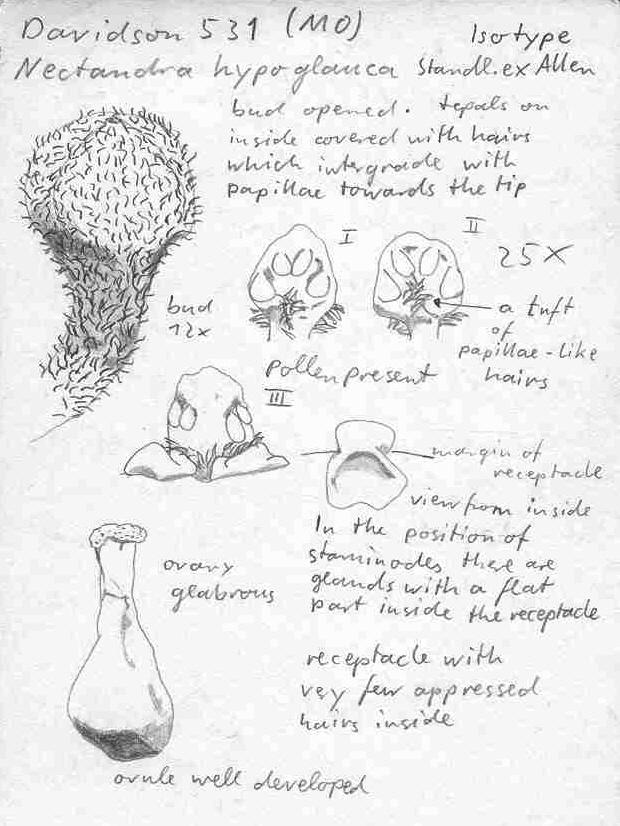 Davidson 531 (MO)
Isotype
Nectandra hypoglauca Standl. ex Allen
bud opened. tepals on
inside covered with hairs
which intergrade with
papillae towards the tip
I
II
25X
bud
12x
a tuft
of
papillae-like
hairs
pollen present
III
margin of
receptacle
view from inside
In the position of
staminodes there are
glands with a flat
part inside the receptacle
ovary
glabrous
receptacle with
very few appressed
hairs inside
ovule well developed